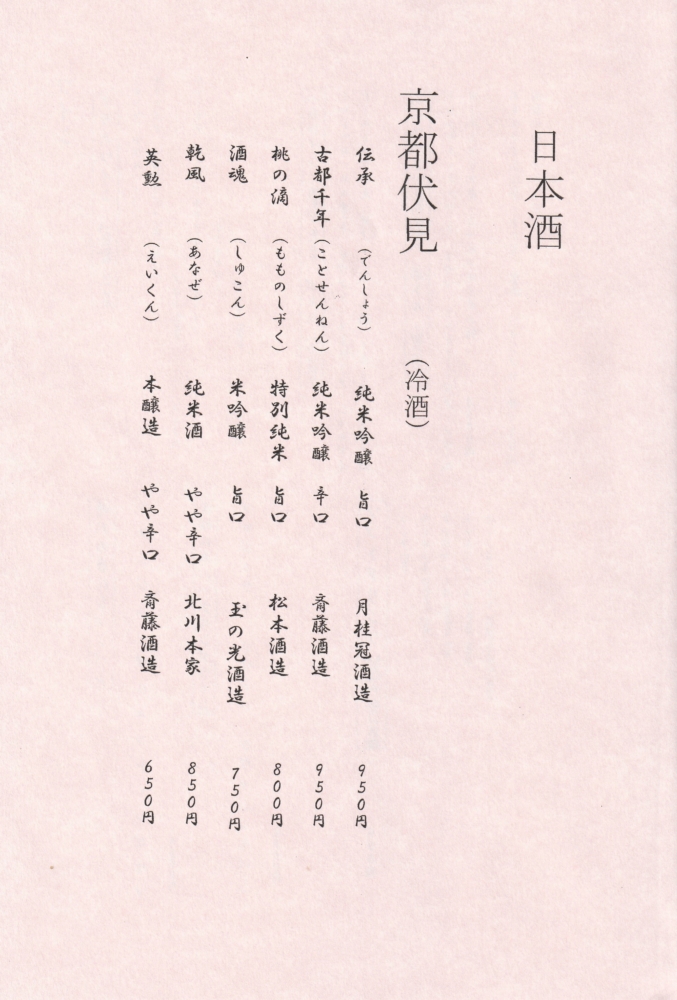 日本酒
京都伏見（冷酒）
伝承（でんしょう）純米吟醸 旨口 月桂冠酒造 950円
古都千年（ことせんねん）純米吟醸 辛口 斎藤酒造 950円
桃の滴（もものしずく）特別純米 旨口 松本酒造 800円
酒魂（しゅこん）米吟醸 旨口 玉の光酒造 750円
乾風（あなぜ）純米酒 やや辛口 北川本家 850円
英勲（えいくん）本醸造 やや辛口 斎藤酒造 650円